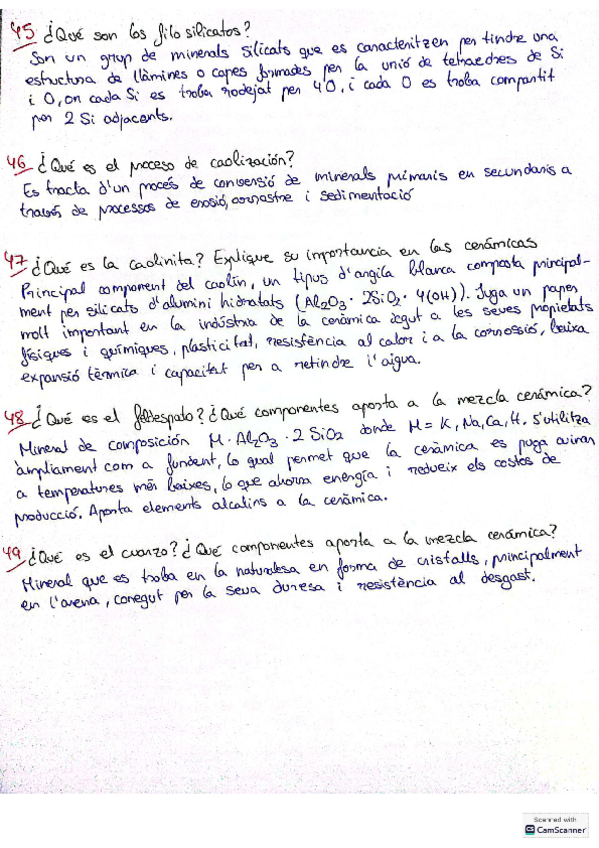 45 ¿Qué son los filosilicatos?
Son un grup de minerals silicats que es caracteritzen per tindre una
estructura de llàmines o capes formades per la unió de tetraedres de Si
i O, on cada Si es troba rodejat per 4 O, i cada O es troba compartit
per 2 Si adjacents.
46 ¿Qué es el proceso de caolización?
Es tracta d'un procés de conversió de minerals primaris en secundaris a
través de processos de erosió, arrastre i sedimentació
47 ¿Qué es la caolinita? Explique su importancia en las cerámicas
Principal component del caolín, un tipus d'argila blanca composta principal-
ment per silicats d'alumini hidratats (Al2O3 · 2SiO2 · 4(OH)). Juga un paper
molt important en la indústria de la ceràmica degut a les seves propietats
físiques i químiques, plasticitat, resistència al calor i a la corrossió, baixa
expansió tèrmica i capacitat per a retindre l'aigua.
48 ¿Qué es el feldespato? ¿Qué componentes aporta a la mezcla cerámica?
Mineral de composición M · Al2O3 · 2 SiO2 donde M = K, Na, Ca, H. S'utilitza
àmpliament com a fundent, lo qual permet que la ceràmica es puga
a temperatures més baixes, lo que ahorra energía i redueix els costos de
producció. Aporta elements alcalins a la ceràmica.
49 ¿Qué es el cuarzo? ¿Qué componentes aporta a la mezcla cerámica?
Mineral que es troba en la naturalesa en forma de cristalls, principalment
en l'arena, conegut per la seva duresa i resistència al desgast.
Scanned with
CamScanner